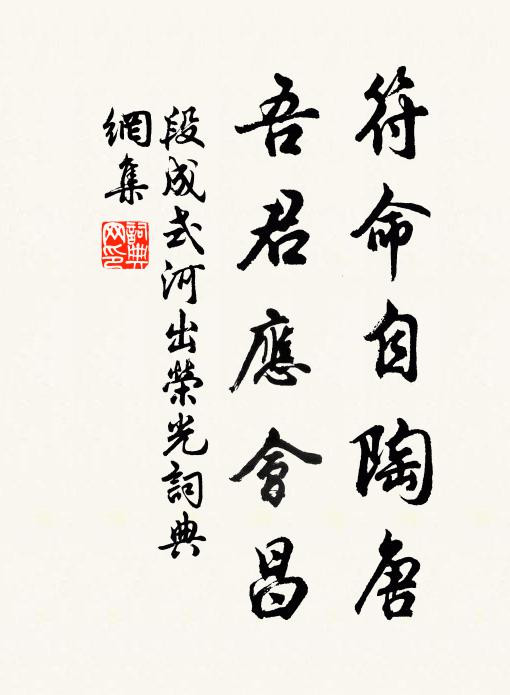 符命自陶唐
吾君應會昌
段成式河出榮光詞典
網集
詞典網印